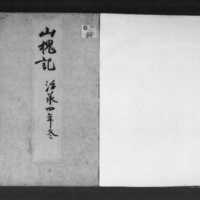 山槐記
治承四年冬